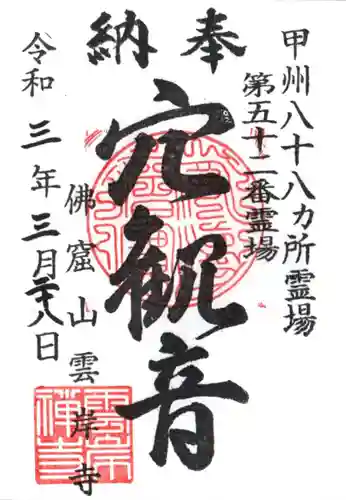 奉納
甲州八十八カ所霊場
第五十二番霊場
穴観音
佛窟山雲岸寺
令和三年三月二十八日
雲岸禅寺